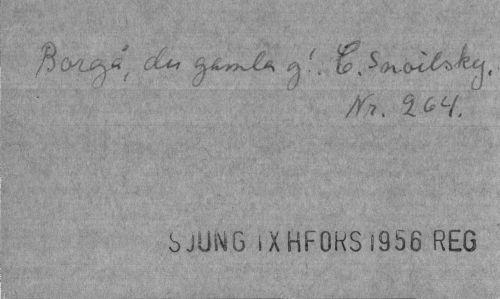 Borgå, du gamla g!. C. Snoilsky.
Nr. 264.
SJUNG IX HFORS 1956 REG